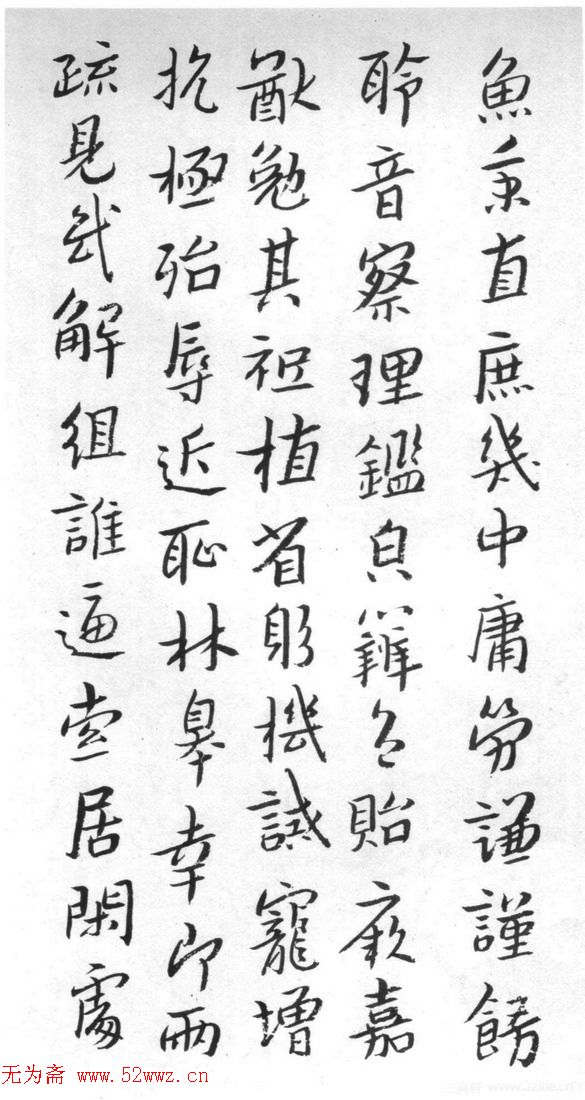 魚秉直庶幾中庸勞謙謹餝
聆音察理鑑皃辯色貽厥嘉
猷勉其祗植省躬機誡寵增
抗極殆辱近恥林皋幸即兩
疏見幾解組誰逼索居閑處
无为斋 www.52wwz.cn